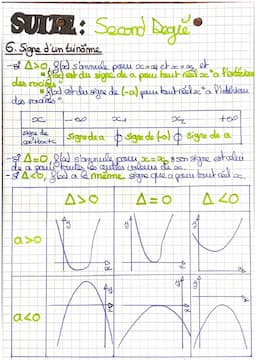 SUITE : Second Degré
6. Signe d'un trinôme
- si Δ>0, f(x) s'annule pour x=x₁ et x=x₂ et
f(x) est du signe de a pour tout réel x "à l'extérieur
des racines"
f(x) est du signe de (-a) pour tout réel x "à l'intérieur
des racines".
x -∞ x₁ x₂ +∞
signe de ax²+bx+c signe de a 0 signe de (-a) 0 signe de a
- si Δ=0, f(x) s'annule pour x=x₀ ; son signe est celui
de a pour toutes les autres valeurs de x.
- si Δ<0, f(x) a le même signe que a pour tout réel x.
Δ>0 Δ=0 Δ<0
a>0
a<0